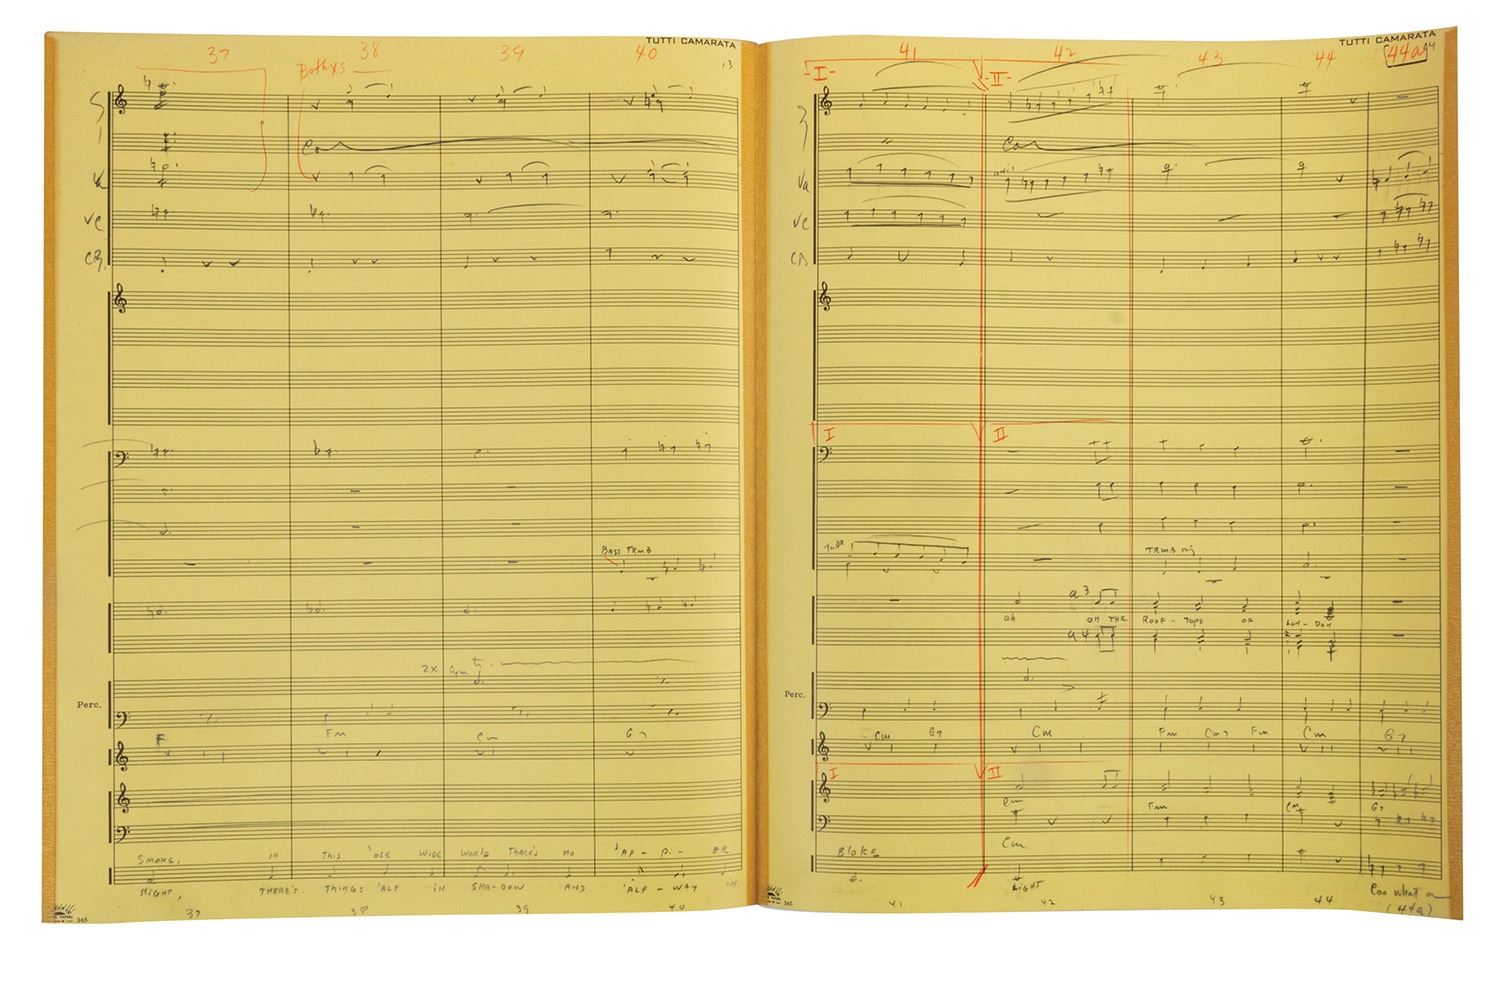 TUTTI CAMARATA
37 38 39 40
Both xs
13
Va
Vc
CB.
Bass TRMB
2x Cym tr.
Perc.
F Fm Cm G7
SMOKE, IN THIS 'OLE WIDE WORLD THERE'S NO 'AP - PI - ER
NIGHT, THERE'S THINGS 'ALF IN SHADOW AND 'ALF - WAY IN
365
37 38 39 40
TUTTI CAMARATA
14
41 42 43 44 44a
-I- -II-
Va
Vc
CB
I II
Tuba
TRMB
a3
ah ON THE ROOF - TOPS OF LON - DON
a4
Perc.
Cm G7 Cm Fm Cm7 Fm Cm G7
I II
Cm Fm Cm G7
Cm
BLOKE
LIGHT
Coo what a
365
41 42 43 44 (44a)